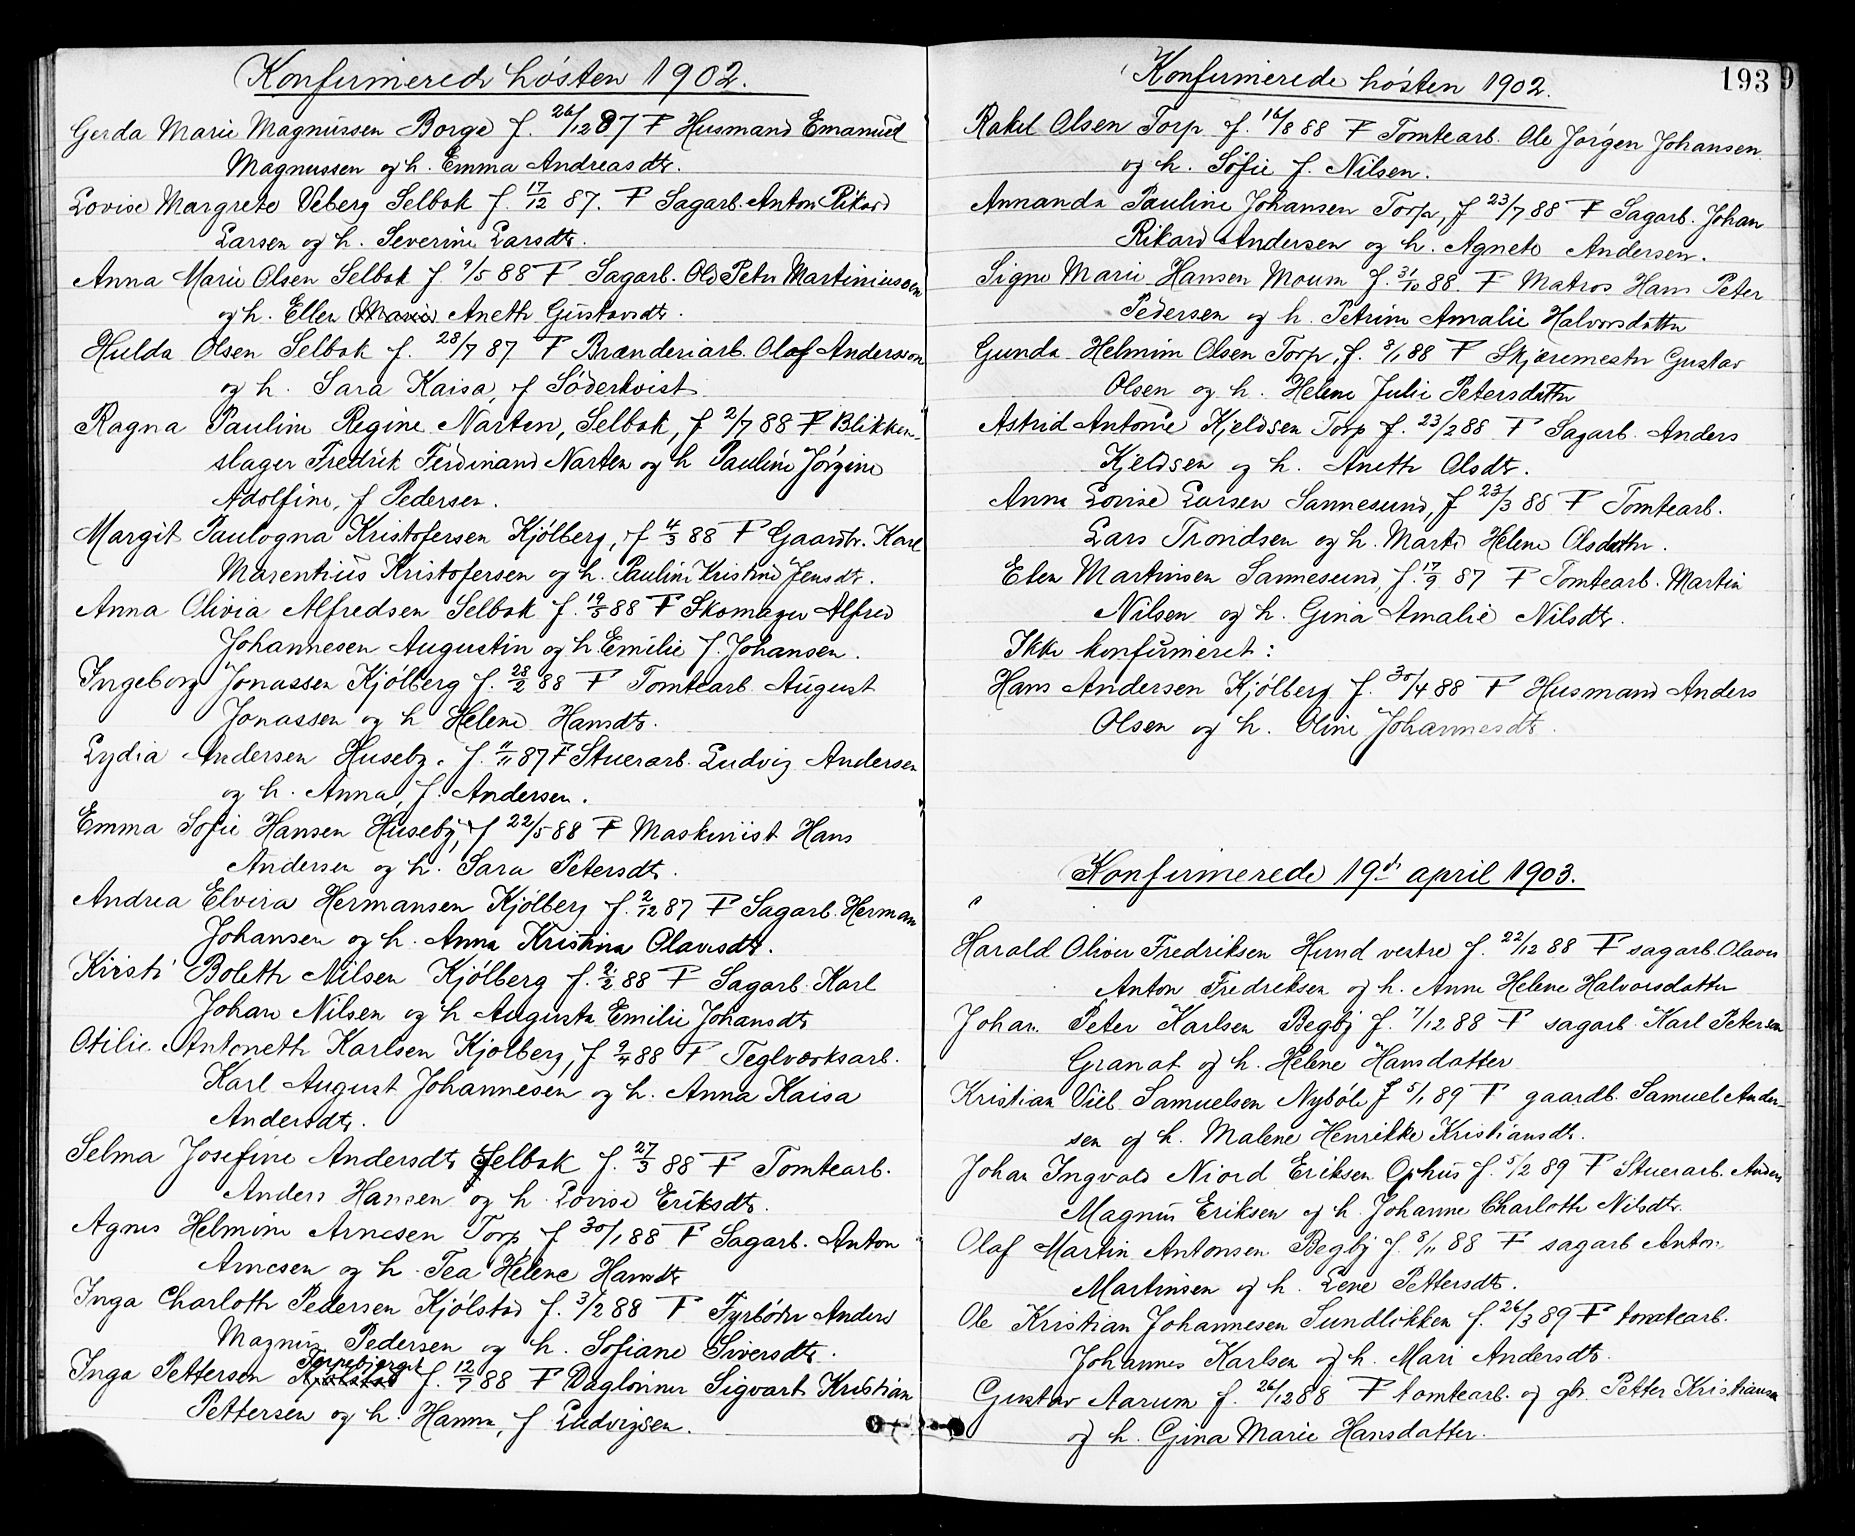 Konfirmerede hösten 1902.
Gerda Marie Magnussen Borge f. 26/12 87 F Husmand Emanuel
Magnussen og h. Emma Andreasdtr.
Lovise Margrete Veberg Selbak f. 17/12 87. F Sagarb. Anton Rikard
Larsen og h. Severine Larsdtr.
Anna Marie Olsen Selbak f. 9/5 88 F Sagarb. Ole Peter Martiniussen
og h. Ellen Marie Aneth Gustavsdtr.
Hulda Olsen Selbak f. 28/7 87 F Brænderiarb. Olaf Andersson
og h. Sara Kaisa, f Söderkvist
Ragna Pauline Regine Narten, Selbak, f 2/7 88 F Blikken-
slager Fredrik Ferdinand Narten og h Pauline Jörgine
Adolfine, f Pedersen.
Margit Paulogna Kristofersen Kjölberg, f 4/3 88 F Gaardbr. Karl
Marentius Kristofersen og h. Pauline Kristine Jensdtr.
Anna Olivia Alfredsen Selbak f. 19/3 88 F Skomager Alfred
Johannesen Augustin og h. Emilie f. Johansen.
Ingeborg Jonassen Kjölberg f. 28/2 88 F Tomtearb. August
Jonassen og h Helene Hansdtr.
Lydia Andersen Huseby. f. 11/11 87 F Stuerarb. Ludvig Andersen
og h. Anna, f. Andersen.
Emma Sofie Hansen Huseby, f 22/5 88 F Maskinist Hans
Andersen og h. Sara Petersdtr.
Andrea Elvira Hermansen Kjölberg f. 2/12 87 F Sagarb. Herman
Johansen og h. Anna Kristina Olavesdtr.
Kirsti Boleth Nilsen Kjölberg f. 2/2 88 F Sagarb. Karl
Johan Nilsen og h Augusta Emilie Johansdtr
Otilie Antoneth Karlsen Kjölberg, f 9/4 88 F Teglværksarb.
Karl August Johannesen og h. Anna Kaisa
Andersdtr.
Selma Josefine Andersdtr Selbak f. 27/3 88 F Tomtearb.
Anders Hansen og h Lovise Eriksdtr.
Agnes Helmine Arnesen Torp f 30/1 88 F Sagarb. Anton
Arnesen og h. Tea Helene Hansdtr
Inga Charloth Pedersen Kjölstad f. 3/2 88 F Fyrböter Anders
Magnus Pedersen og h. Sofiane Siversdtr.
Inga Pettersen Kjölstad Tornebjerget f. 12/7 88 F Daglönner Sigvart Kristian
Pettersen og h. Hanna, f Ludvigsen.
Konfirmerede hösten 1902.
193
9
Rakel Olsen Torp f. 16/8 88 F Tomtearb. Ole Jörgen Johansen
og h. Sofie f. Nilsen.
Annanda Pauline Johansen Torp, f 23/7 88 F Sagarb. Johan
Rikard Andersen og h. Agnete Andersen.
Signe Marie Hansen Moum f. 31/10 88. F Matros Hans Peter
Pedersen og h. Petrine Amalie Halvorsdatter
Gunda Helmine Olsen Torp, f. 8/1 88 F Skjæremester Gustav
Olsen og h. Helene Julie Petersdatter
Astrid Antonie Kjeldsen Torp f. 23/2 88 F Sagarb. Anders
Kjeldsen og h. Aneth Olsdtr.
Anna Lovise Larsen Sannesund, f 23/3 88 F Tomtearb.
Lars Trondsen og h. Marte Helene Olsdatter.
Elen Martinsen Sannesund, f. 17/9 87 F Tomtearb. Martin
Nilsen og h. Gina Amalie Nilsdtr.
Ikke konfirmeret:
Hans Andersen Kjölberg f. 30/4 88 F Husmand Anders
Olsen og h. Oline Johannesdtr.
Konfirmerede 19d april 1903.
Harald Oliver Fredriksen Hund vestre f. 22/12 88 F sagarb. Olaves
Anton Fredriksen og h. Anne Helene Halvorsdatter
Johan Peter Karlsen Begby f. 7/12 88 F sagarb. Karl Petersen
Granat og h. Helene Hansdatter
Kristian Viel Samuelsen Nyböle f 5/1 89 F gaardb. Samuel Ander-
sen og h. Malene Henrikke Kristiansdtr.
Johan Ingvald Niord Eriksen Ophus f. 5/2 89 F Stuerarb. Anders
Magnus Eriksen og h. Johanne Charlotte Nilsdtr.
Olaf Martin Antonsen Begby f. 8/11 88 F sagarb Anton
Martinsen og h. Lene Pettersdtr.
Ole Kristian Johannesen Sundlökken f. 26/3 89 F tomtearb.
Johannes Karlsen og h. Mari Andersdtr.
Gustav Aarum f. 26/12 88 F tomtearb. og gbr. Petter Kristiansen
og h. Gina Marie Hansdatter.